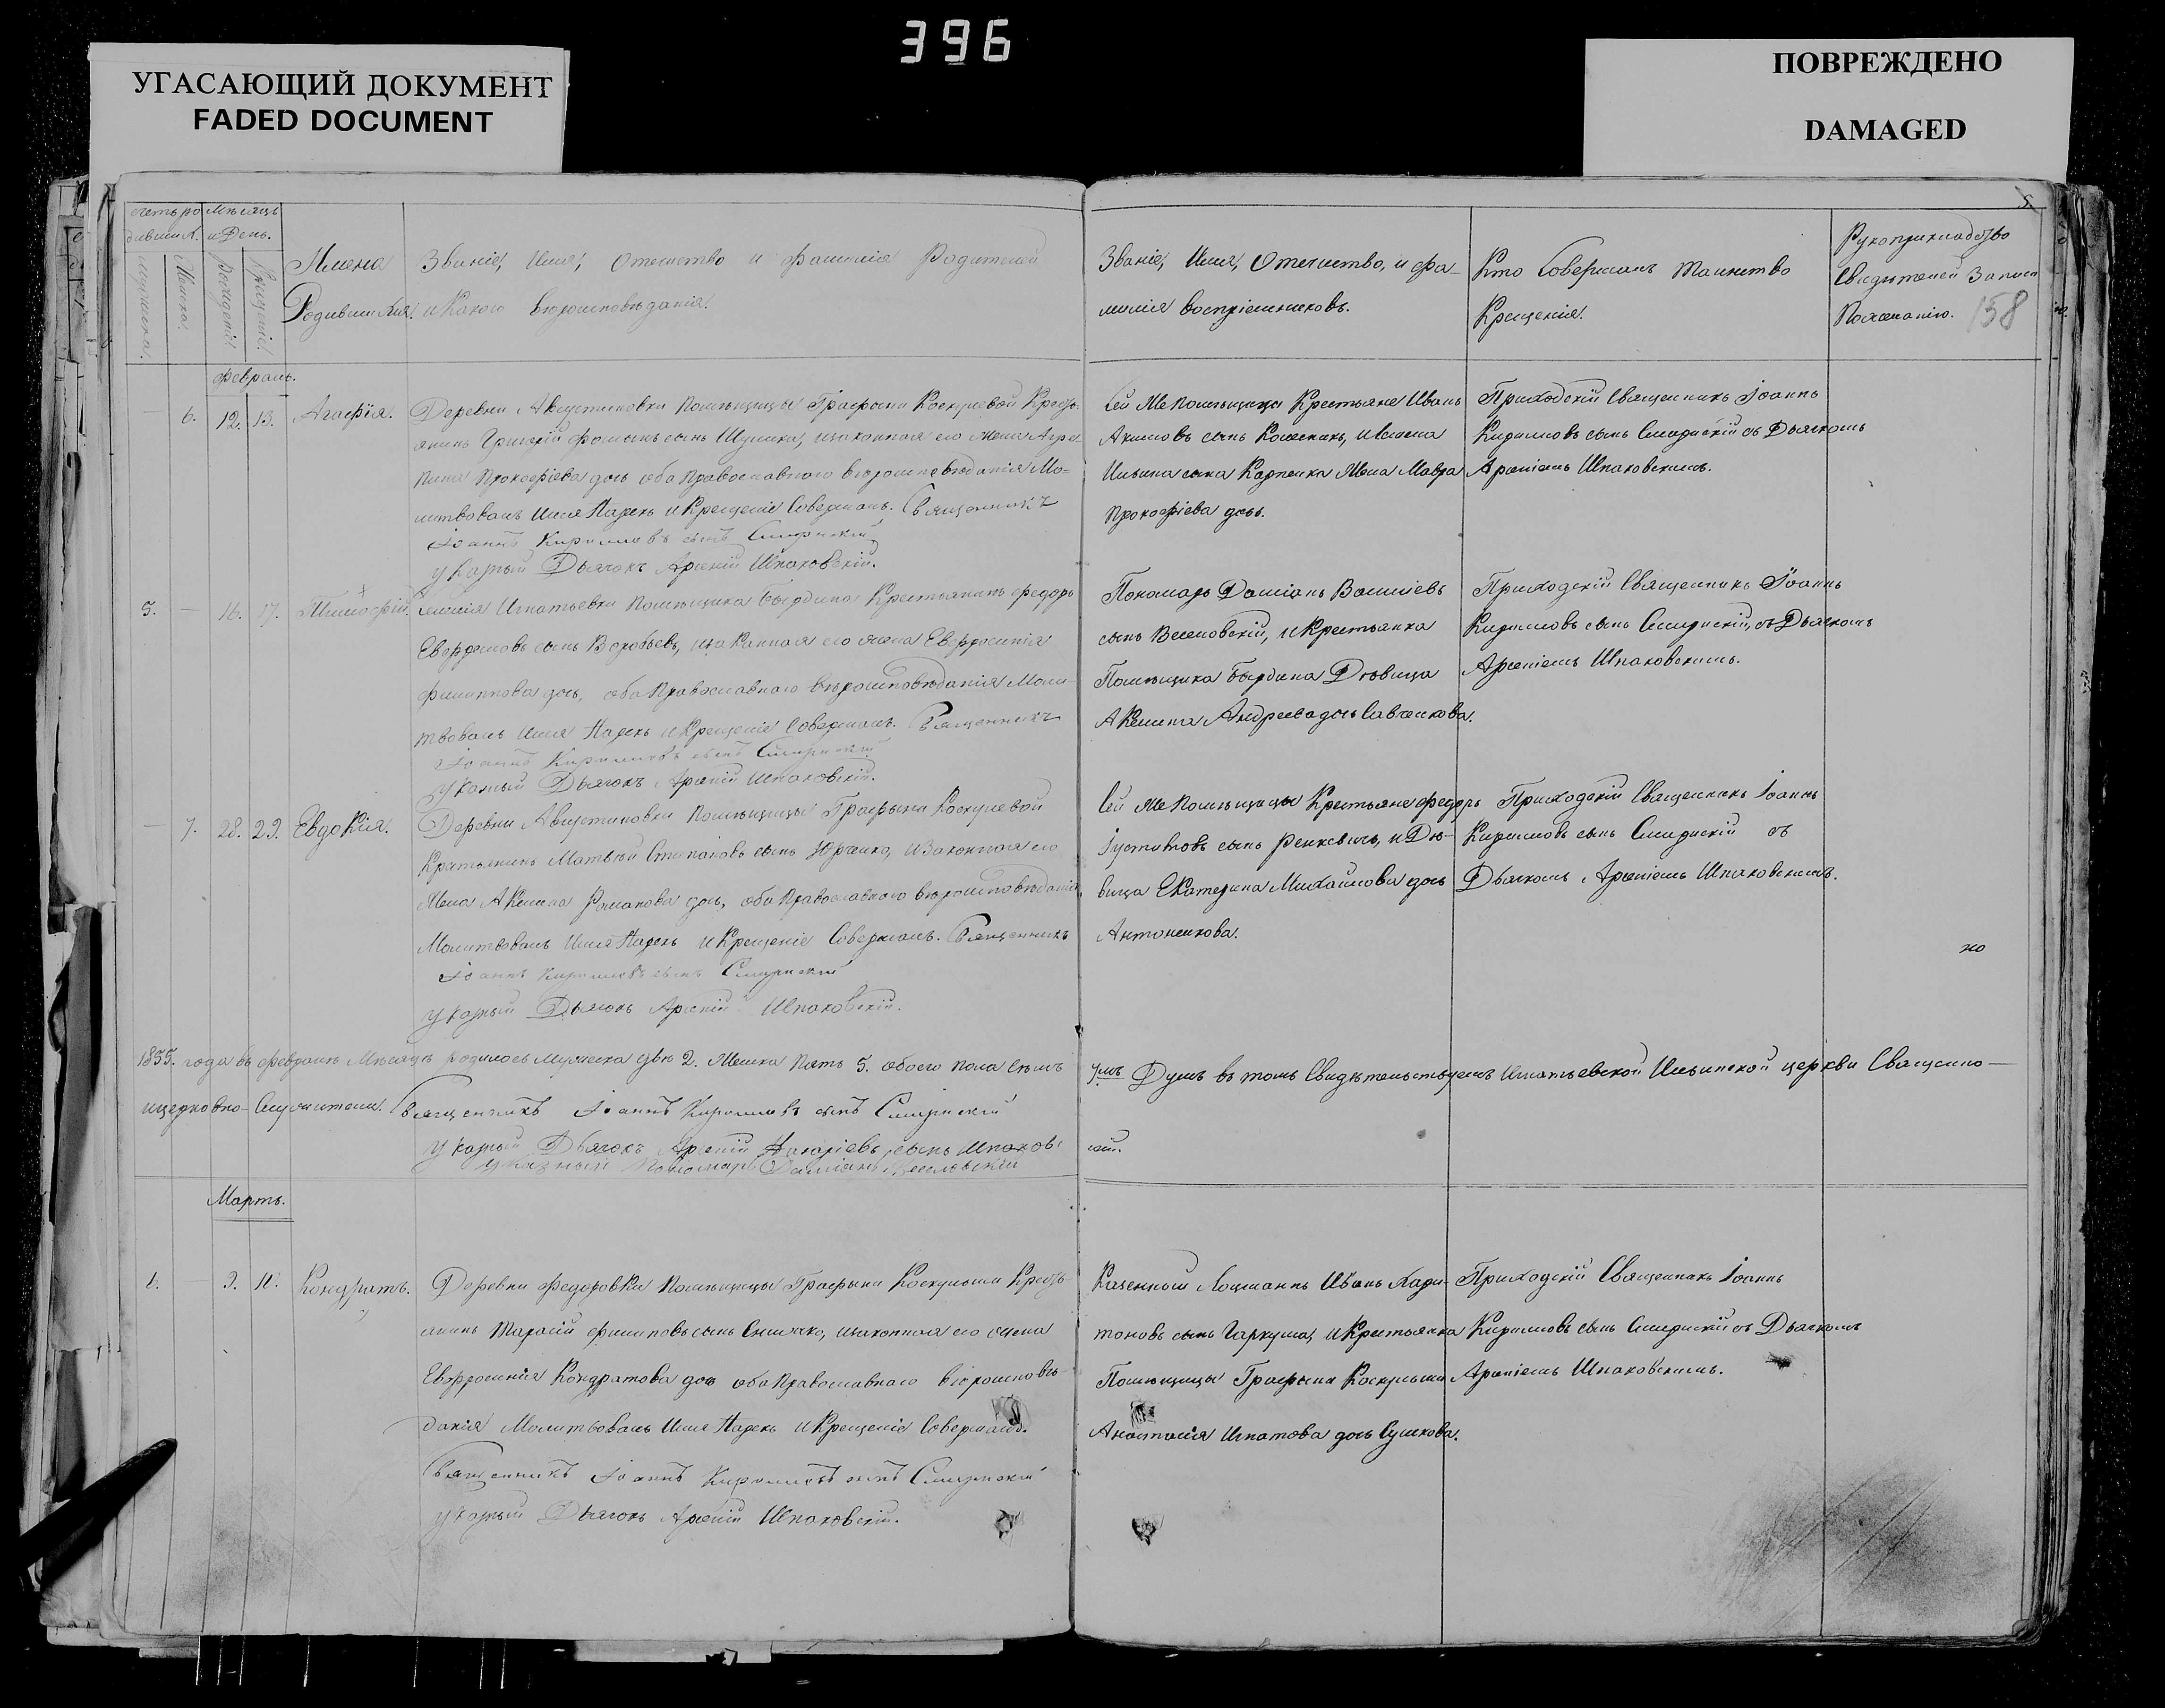 396
УГАСАЮЩИЙ ДОКУМЕНТ
FADED DOCUMENT
ПОВРЕЖДЕНО
DAMAGED
Мѣсяцъ
и День.
Мужеска.
Женска.
Рожденiя
Крещенiя
Имена
Родившихся.
Званiе, Имя, Отечество и Фамилiя Родителей
и Какого вѣроисповѣданiя.
Званiе, Имя, Отечество, и фа-
милiя воспрiемниковъ.
Кто Совершалъ Таинство
Крещенiя.
Рукоприкладство
Свидѣтелей Записи
По желанiю.
158
Февраль.
6. 12. 13. Агафiя.
Деревни Августиновки Помѣщицы Графыни Коскулевой Кресть-
янинъ Григорiй сынъ законная его Жена Агри-
пина Прокофiева дочь оба Православного вѣроисповѣданiя Мо-
литвовалъ Имя Нарекъ и Крещенiе Совершалъ. Священникъ
Iоаннъ Кирилловъ сынъ
указный Дьячокъ Арсенiй Шпаковскiй.
Сей же Помѣщицы Крестьяне Иванъ
Акимовъ сынъ
Ильина сына Карпенка Жена Мавра
Прокофiева дочь.
Приходскiй Священникъ Iоаннъ
Кирилловъ сынъ съ Дьячкомъ
Арсенiемъ Шпаковскимъ.
5. — 16. 17. Тимофiй.
Игнатьевки Помѣщика Бырдина Крестьянинъ Федоръ
сынъ Воробьевъ, законная его жена Евфросинiя
Филиппова дочь, оба Православного вѣроисповѣданiя Моли-
твовалъ Имя Нарекъ и Крещенiе Совершалъ. Священникъ
Iоаннъ Кирилловъ сынъ
указный Дьячокъ Арсенiй Шпаковскiй.
Пономарь Дамiанъ Василiевъ
сынъ Веселовскiй, и Крестьянка
Помѣщика Бырдина Дѣвица
Акилина Андреева дочь Савченкова.
Приходскiй Священникъ Iоаннъ
Кирилловъ сынъ съ Дьячкомъ
Арсенiемъ Шпаковскимъ.
— 7. 28. 29. Евдокiя.
Деревни Августиновки Помѣщицы Графыни Коскулевой
Крестьянинъ Матвѣй Степановъ сынъ Юрченко, и Законная его
Жена Акилина Романова дочь, оба Православного вѣроисповѣданiя
Молитвовалъ Имя Нарекъ и Крещенiе Совершалъ. Священникъ
Iоаннъ Кирилловъ сынъ
указный Дьячокъ Арсенiй Шпаковскiй.
Сей же Помѣщицы Крестьяне Федоръ
Iустиновъ сынъ и Дѣ-
вица Екатерина Михайлова дочь
Антоненкова.
Приходскiй Священникъ Iоаннъ
Кирилловъ сынъ съ
Дьячкомъ Арсенiемъ Шпаковскимъ.
1855. года въ Февралѣ Мѣсяцѣ родилось Мужеска два 2. Женска Пять 5. обоего пола Семь 7мь Душъ въ томъ Свидѣтельствуемъ Игнатьевской Ильинской церкви Священно-
и церковно-Служители. Священникъ Iоаннъ Кирилловъ сынъ
указный Дьячокъ Арсенiй сынъ Шпаковскiй.
указный Пономарь Дамiанъ Веселовскiй
Мартъ.
1. — 9. 11. Кондратъ.
Деревни Федоровки Помѣщицы Графыни Коскульши Кресть-
янинъ Тарасiй Филиповъ сынъ законная его жена
Евфросинiя Кондратова дочь оба Православного вѣроисповѣ-
данiя Молитвовалъ Имя Нарекъ и Крещенiе Совершалъ.
Священникъ Iоаннъ Кирилловъ сынъ
указный Дьячокъ Арсенiй Шпаковскiй.
Казенный Лоцманъ Иванъ Хари-
тоновъ сынъ Гаркуша, и Крестьянка
Помѣщицы Графыни Коскульши
Анастасiя Игнатова дочь Сушкова.
Приходскiй Священникъ Iоаннъ
Кирилловъ сынъ съ Дьячкомъ
Арсенiемъ Шпаковскимъ.